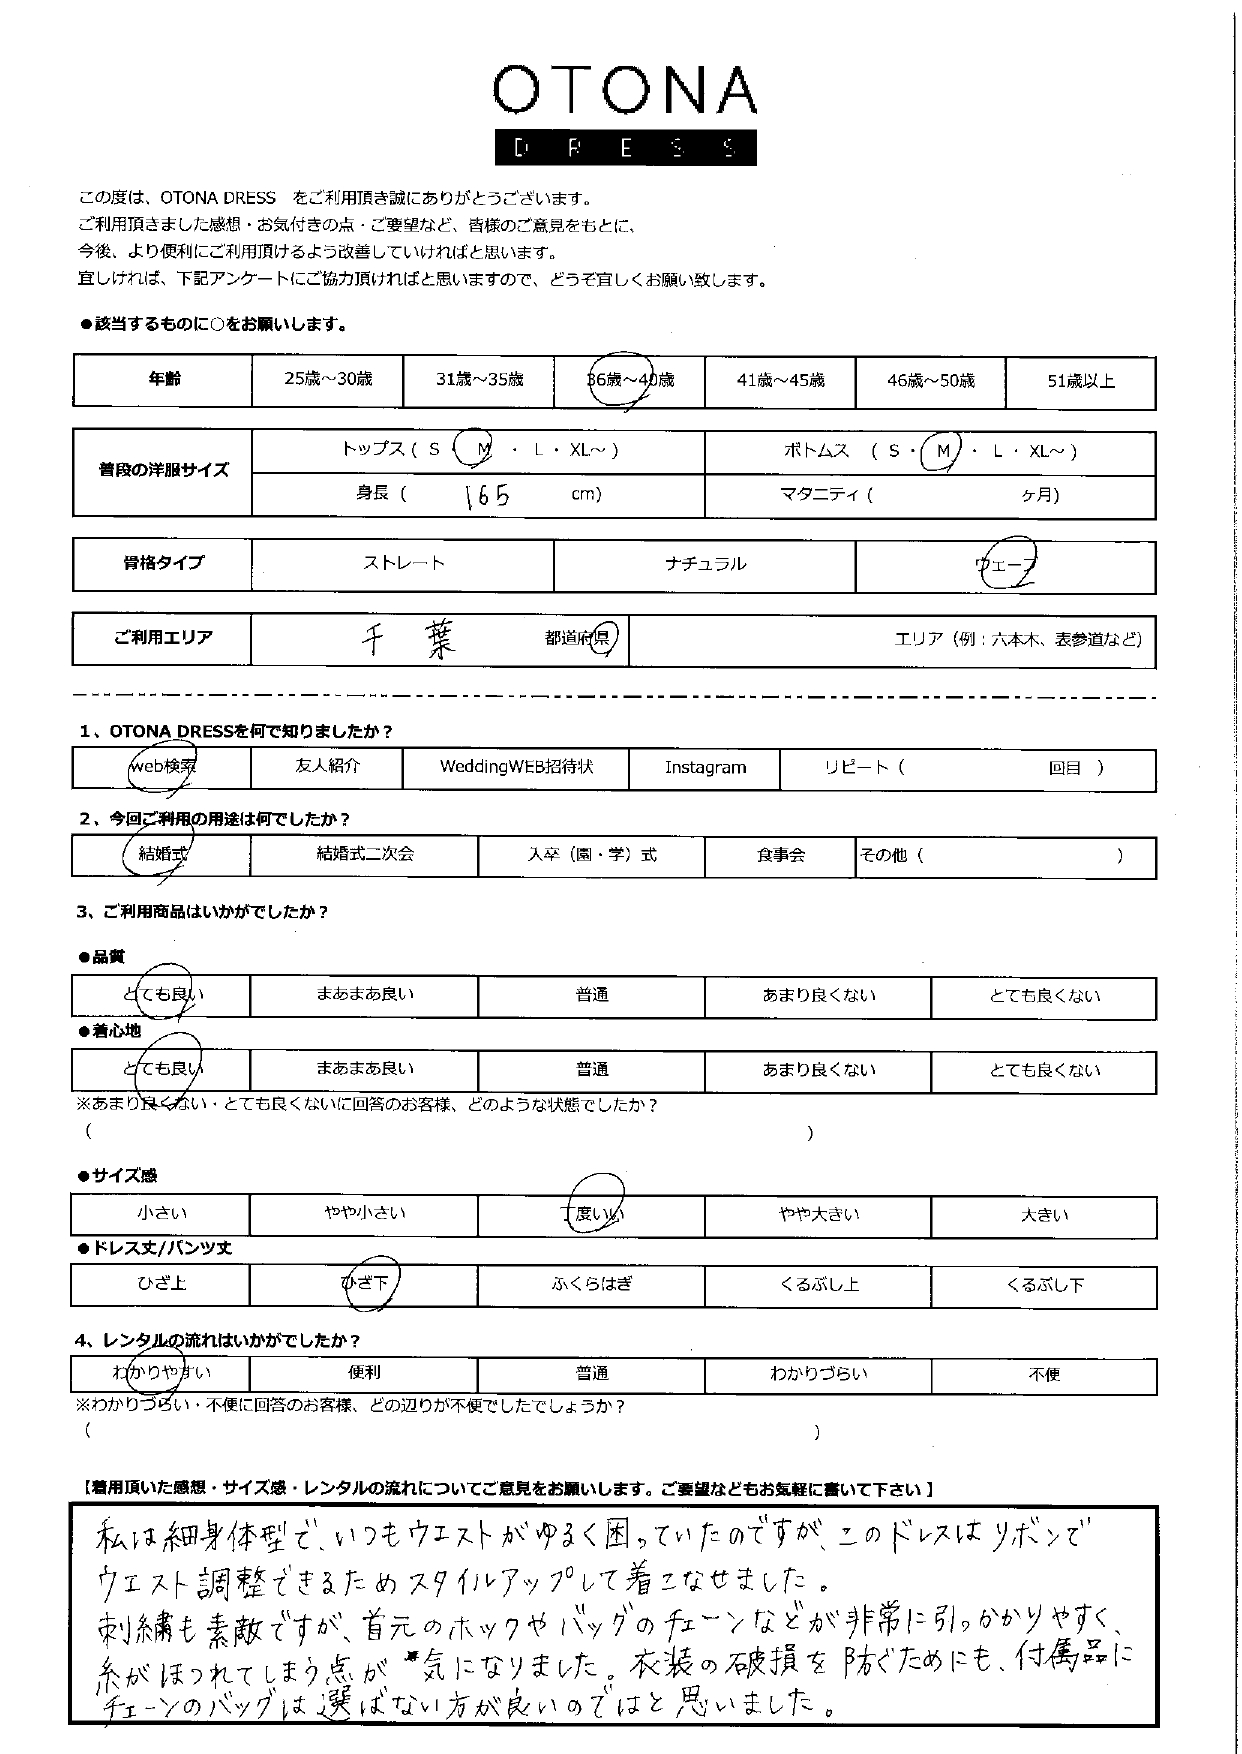 OTONA
DRESS
この度は、OTONA DRESS をご利用頂き誠にありがとうございます。
ご利用頂きました感想・お気付きの点・ご要望など、皆様のご意見をもとに、
今後、より便利にご利用頂けるよう改善していければと思います。
宜しければ、下記アンケートにご協力頂ければと思いますので、どうぞ宜しくお願い致します。
●該当するものに○をお願いします。
年齢 25歳～30歳 31歳～35歳 36歳～40歳 41歳～45歳 46歳～50歳 51歳以上
普段の洋服サイズ トップス ( S ・ M ・ L ・ XL～ ) ボトムス ( S ・ M ・ L ・ XL～ )
身長 ( 165 cm) マタニティ ( ヶ月)
骨格タイプ ストレート ナチュラル ウェーブ
ご利用エリア 千葉 都道府県 エリア（例：六本木、表参道など）
1、OTONA DRESSを何で知りましたか？
web検索 友人紹介 WeddingWEB招待状 Instagram リピート ( 回目 )
2、今回ご利用の用途は何でしたか？
結婚式 結婚式二次会 入卒（園・学）式 食事会 その他 ( )
3、ご利用商品はいかがでしたか？
●品質
とても良い まあまあ良い 普通 あまり良くない とても良くない
●着心地
とても良い まあまあ良い 普通 あまり良くない とても良くない
※あまり良くない・とても良くないに回答のお客様、どのような状態でしたか？
( )
●サイズ感
小さい やや小さい 丁度いい やや大きい 大きい
●ドレス丈/パンツ丈
ひざ上 ひざ下 ふくらはぎ くるぶし上 くるぶし下
4、レンタルの流れはいかがでしたか？
わかりやすい 便利 普通 わかりづらい 不便
※わかりづらい・不便に回答のお客様、どの辺りが不便でしたでしょうか？
( )
【着用頂いた感想・サイズ感・レンタルの流れについてご意見をお願いします。ご要望などもお気軽に書いて下さい】
私は細身体型で、いつもウエストがゆるく困っていたのですが、このドレスはリボンで
ウエスト調整できるためスタイルアップして着こなせました。
刺繍も素敵ですが、首元のホックやバッグのチェーンなどが非常に引っかかりやすく、
糸がほつれてしまう点が気になりました。衣装の破損を防ぐためにも、付属品に
チェーンのバッグは選ばない方が良いのではと思いました。